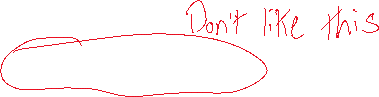 Don't like this